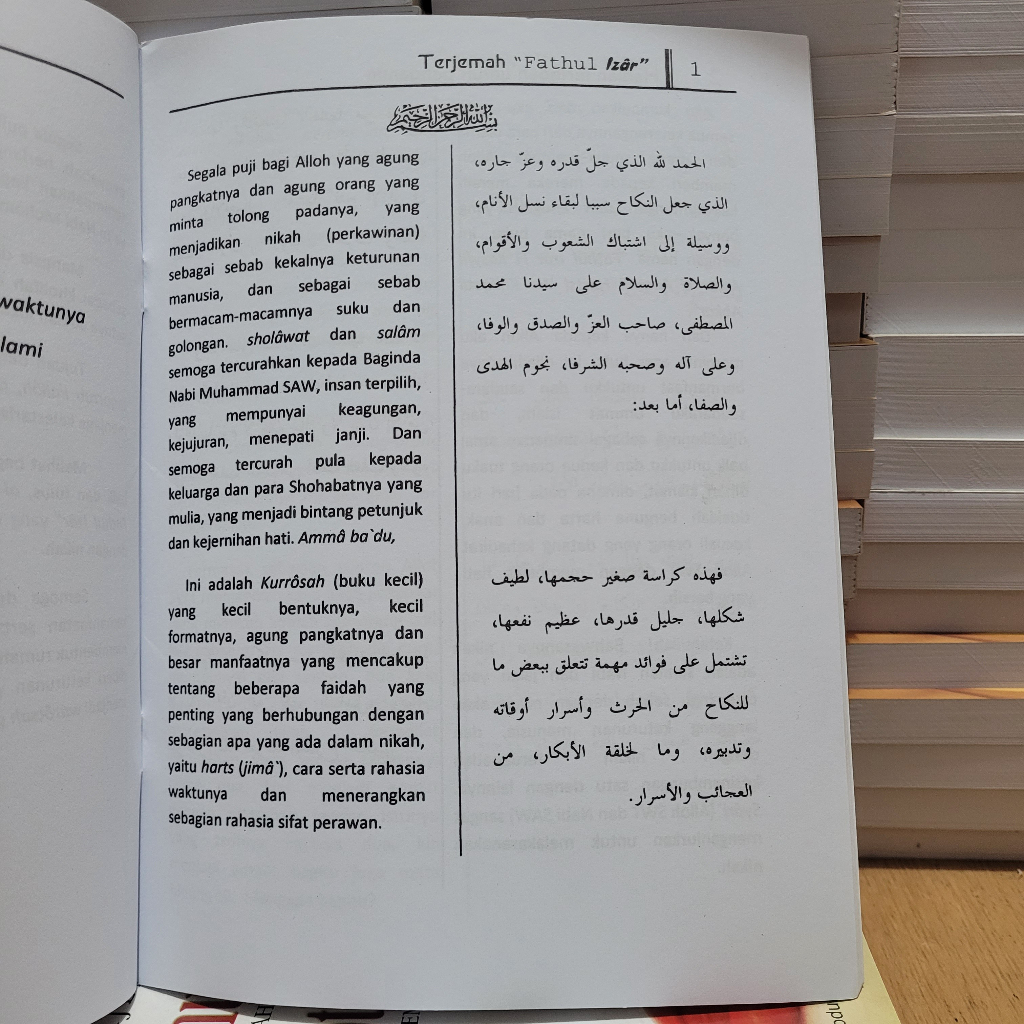 Terjemah "Fathul Izâr" 1
بسم الله الرحمن الرحيم
Segala puji bagi Alloh yang agung
pangkatnya dan agung orang yang
minta tolong padanya, yang
menjadikan nikah (perkawinan)
sebagai sebab kekalnya keturunan
manusia, dan sebagai sebab
bermacam-macamnya suku dan
golongan. sholâwat dan salâm
semoga tercurahkan kepada Baginda
Nabi Muhammad SAW, insan terpilih,
yang mempunyai keagungan,
kejujuran, menepati janji. Dan
semoga tercurah pula kepada
keluarga dan para Shohabatnya yang
mulia, yang menjadi bintang petunjuk
dan kejernihan hati. Ammâ ba`du,
Ini adalah Kurrôsah (buku kecil)
yang kecil bentuknya, kecil
formatnya, agung pangkatnya dan
besar manfaatnya yang mencakup
tentang beberapa faidah yang
penting yang berhubungan dengan
sebagian apa yang ada dalam nikah,
yaitu harts (jimâ`), cara serta rahasia
waktunya dan menerangkan
sebagian rahasia sifat perawan.
الحمد لله الذي جلّ قدره وعزّ جاره،
الذي جعل النكاح سببا لبقاء نسل الأنام،
ووسيلة إلى اشتباك الشعوب والأقوام،
والصلاة والسلام على سيدنا محمد
المصطفى، صاحب العزّ والصدق والوفا،
وعلى آله وصحبه الشرفا، نجوم الهدى
والصفا، أما بعد:
فهذه كراسة صغير حجمها، لطيف
شكلها، جليل قدرها، عظيم نفعها،
تشتمل على فوائد مهمة تتعلق ببعض ما
للنكاح من الحرث وأسرار أوقاته
وتدبيره، وما لخلقة الأبكار، من
العجائب والأسرار.
waktunya
lami